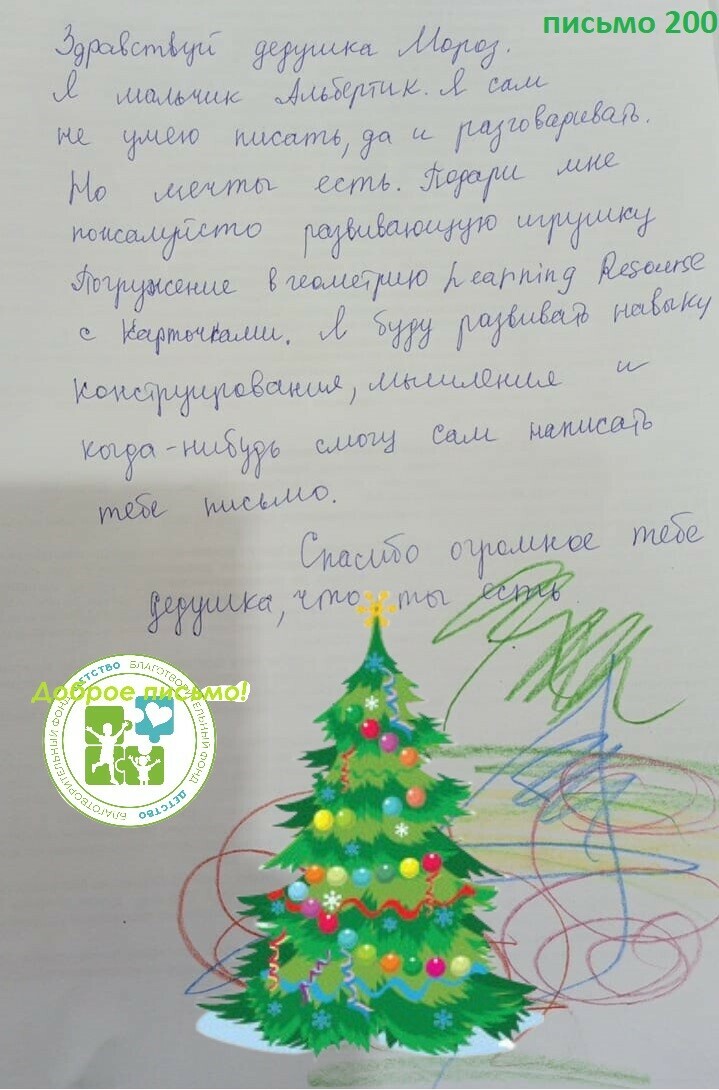 письмо 200
Здравствуй дедушка Мороз.
Я мальчик Альбертик. Я сам
не умею писать, да и разговаривать.
Но мечты есть. Подари мне
пожалуйсто развивающую игрушку
Погружение в геометрию Learning Resourse
с карточками. Я буду развивать навыки
конструирования, мышления и
когда-нибудь смогу сам написать
тебе письмо.
Спасибо огромное тебе
дедушка, что ты есть
Доброе письмо!
БЛАГОТВОРИТЕЛЬНЫЙ ФОНД ДЕТСТВО БЛАГОТВОРИТЕЛЬНЫЙ ФОНД ДЕТСТВО